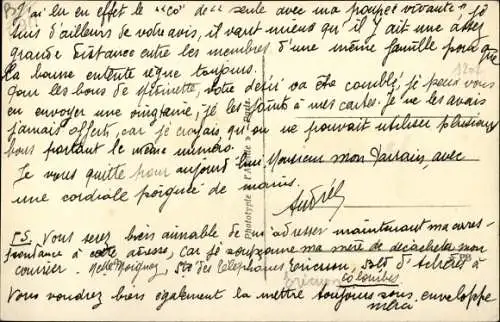 J'ai eu en effet le "co" de seule avec ma poupée vivante. Je
suis d'ailleurs de votre avis, il vaut mieux qu'il y ait une assez
grande distance entre les membres d'une même famille pour que
la bonne entente règne toujours.
Pour les bons de votre désir va être comblé, je peux vous
en envoyer une vingtaine, je les joints à mes cartes. Je ne les avais
jamais offerts, car je croyais qu'on ne pouvait utiliser plusieurs
bons portant le même numéro.
Je vous quitte pour aujourd'hui Monsieur mon Parrain, avec
une cordiale poignée de mains.
Phototype « l'Abeille »
PS. Vous serez bien aimable de m'adresser maintenant ma corres-
pondance à cette adresse, car je soupçonne ma mère de décacheter mon
courrier. Melle des Téléphones Ericsson, Bld d'Achères à
Colombes
Vous voudrez bien également la mettre toujours sous enveloppe
merci